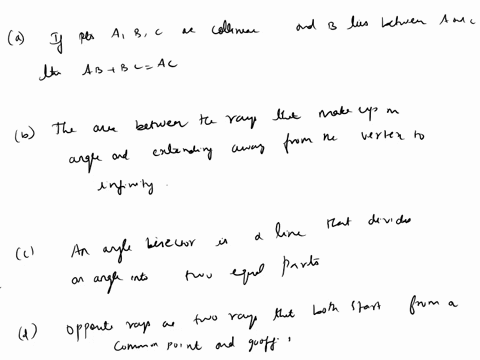 (a) If A, B, C are collinear and B lies between A and C
then AB + BC = AC
(b) The area between the rays that make up an
angle and extending away from the vertex to
infinity.
(c) An angle bisector is a line that divides
an angle into two equal parts
(d) Opposite rays are two rays that both start from a
common point and go off